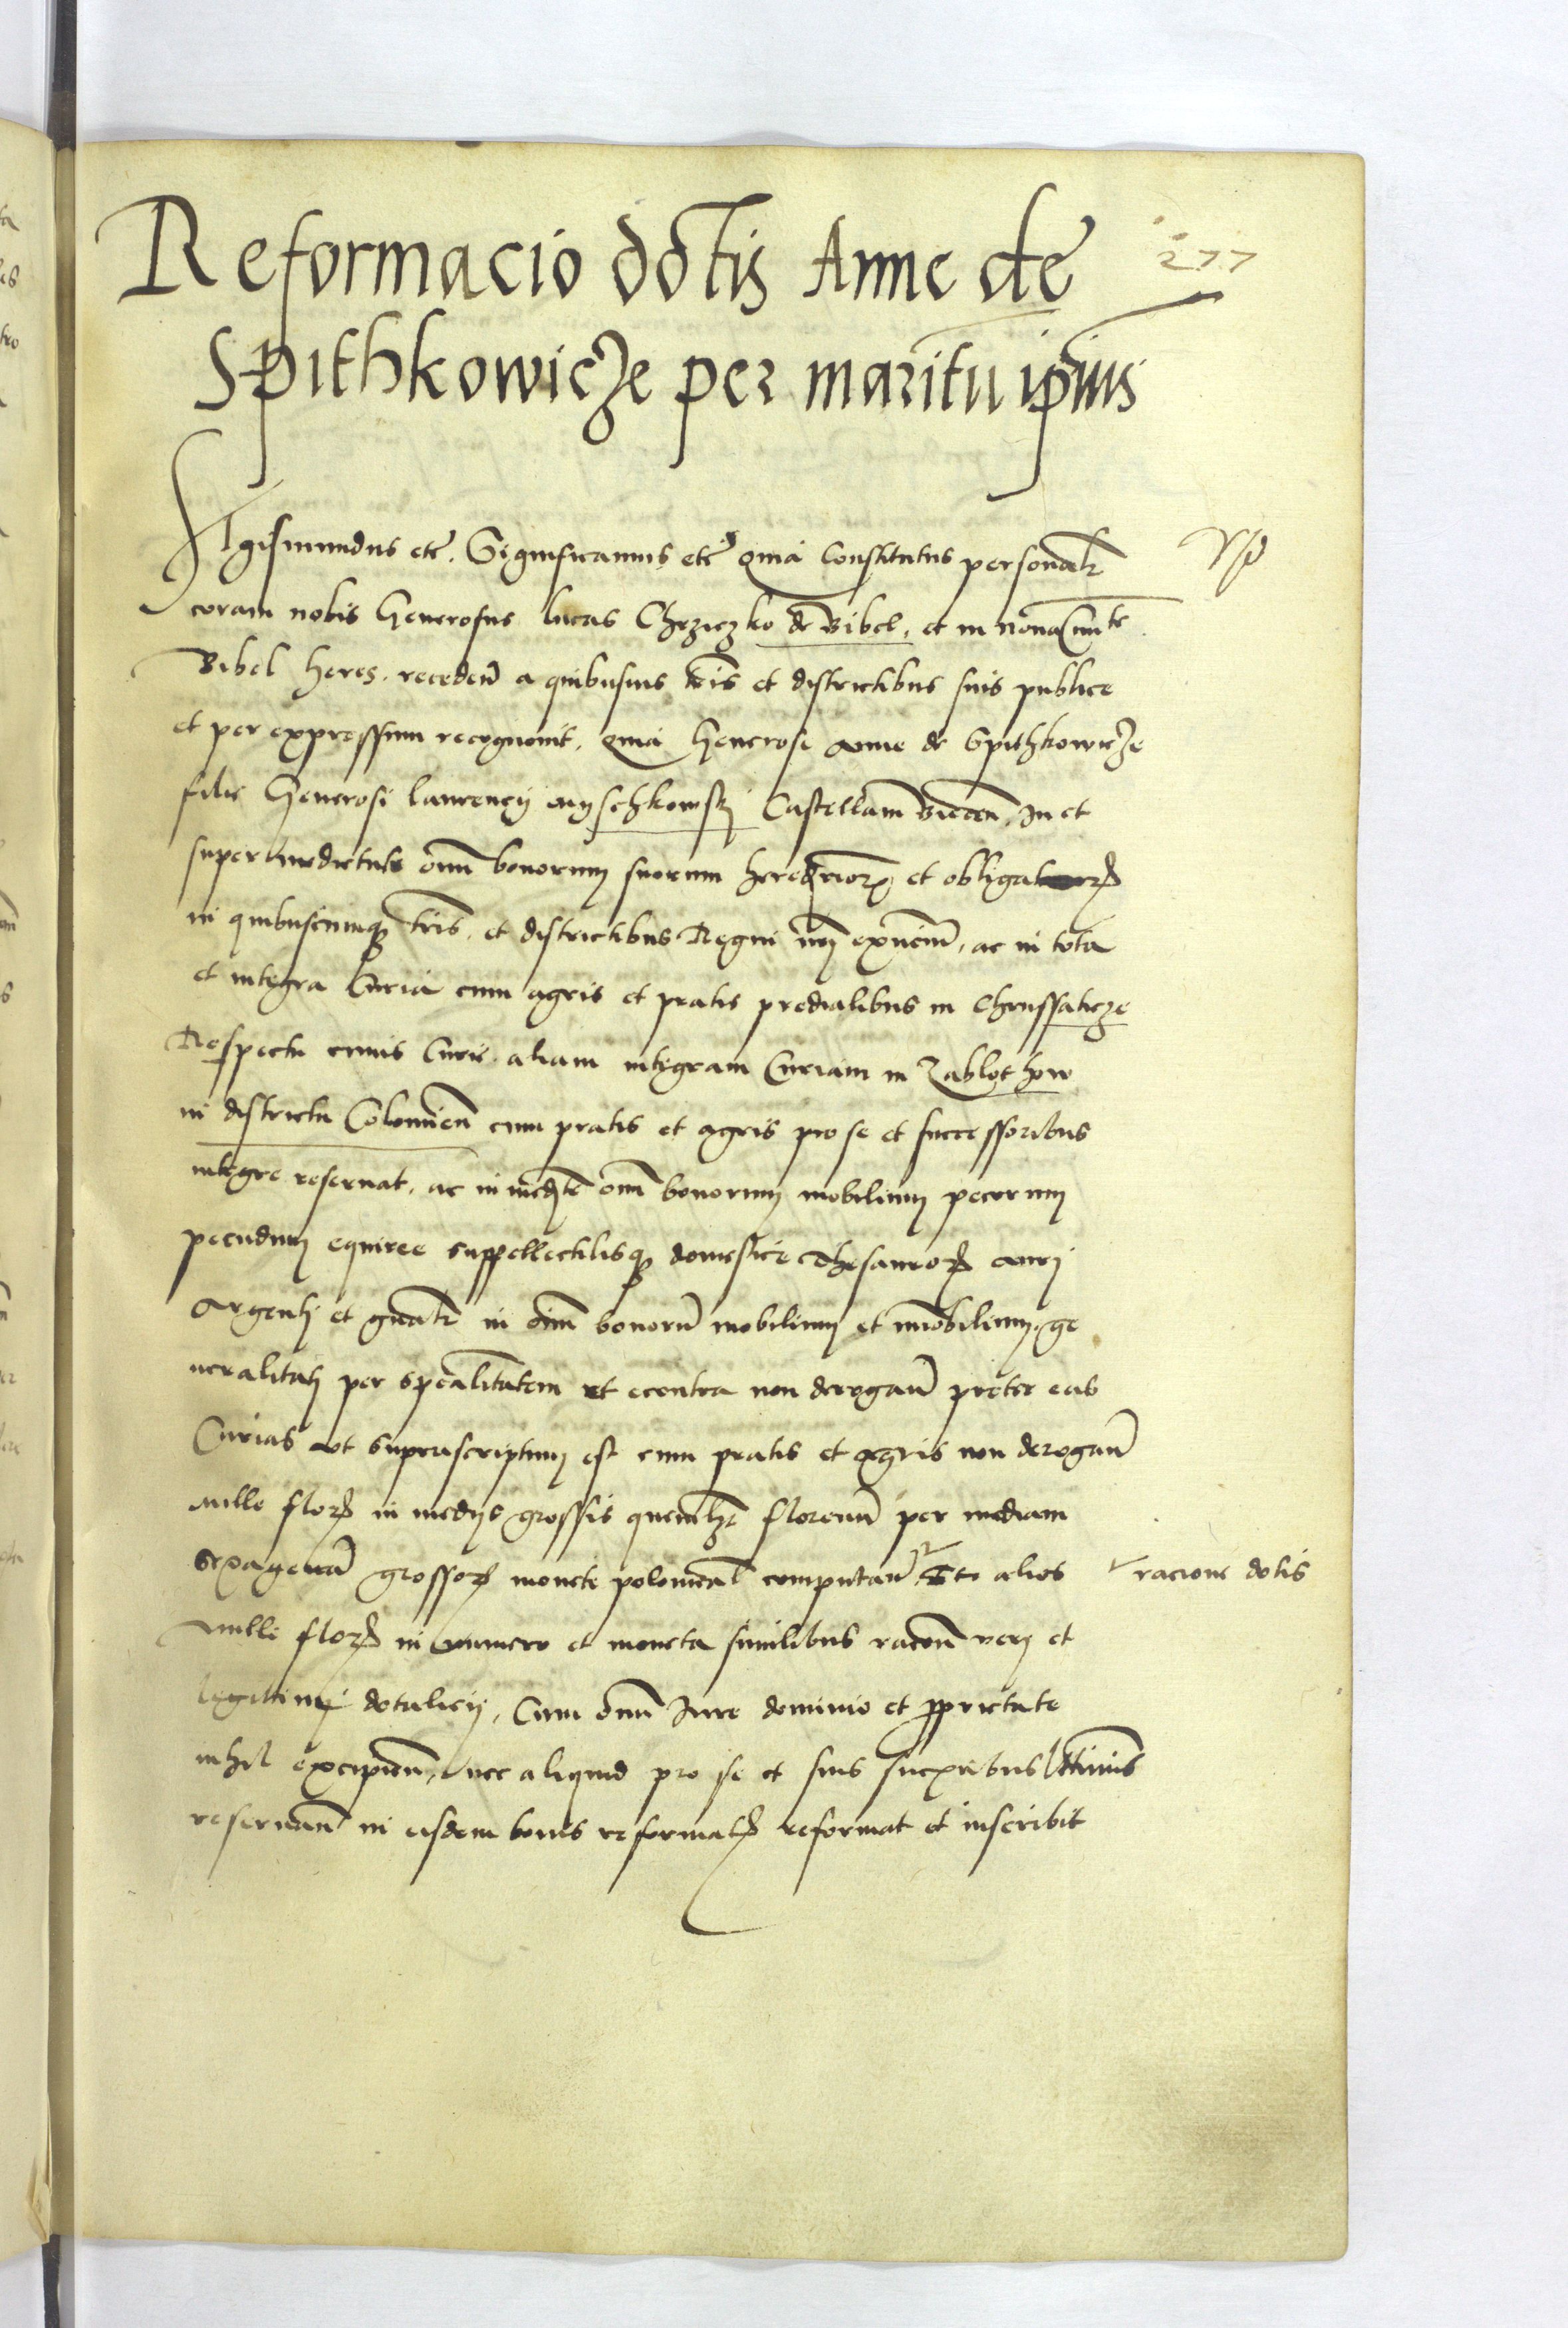 Reformacio dotis Anne de
277
Spithkowicze per maritu ipius
Sigismundus etc. Significamus etc quia constitutus personalr
coram nobis Generosus lucas Chrziczko de Bibel, et in nona
Bibel heres, recedeñ a quibusuis tris et districtibus suis publice
et per expressum recognouit, quia Generose Anne de Spithkowicze
filie Generosi laurencij Myschkowskj Castellani Biecen, in et
super medietate omm bonorum suorum hereditarior et obligatorp
in quibuscunq tris, et districtibus Regni nrj exñcium, ac in tota
et integra Curia cum agris et pratis predialibus in Chrussaticze
Respectu cuius Curie aliam integram Curiam in Zablothow
in districtu Colomien cum pratis et agris pro se et successoribus
integre reseruat, ac in medte omm bonorum mobilium pecorum
pecudum equiree suppellectilisq domestice Thesaurorp aurj
Argentj et gnalr in oim bonorū mobilium et immobilium, ge
neralitatj per spealitatem et econtra non derogañ preter eas
Curias ut suprascriptum est cum pratis et agris non derogañ
Mille florp in medijs grossis quemlzt florenū per mediam
sexagenā grossorp monete polonical computañ Et alios
racione dotis
Mille florp in numero et moneta similibus racoñ verj et
legittimj dotalicij, Cum omni Iure dominio et pprietate
nihil excipieñ, nec aliquid pro se et suis sucxribus lttimis
reseruañ in eisdem bonis reformatp reformat et inscribit